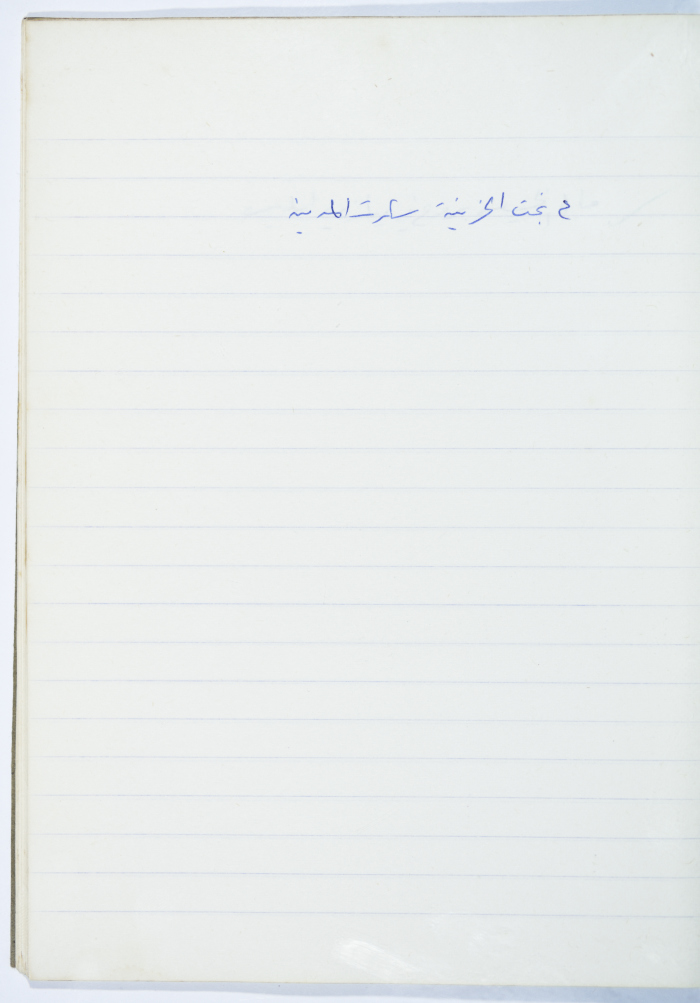 تحت الخزينة سارت المدينة